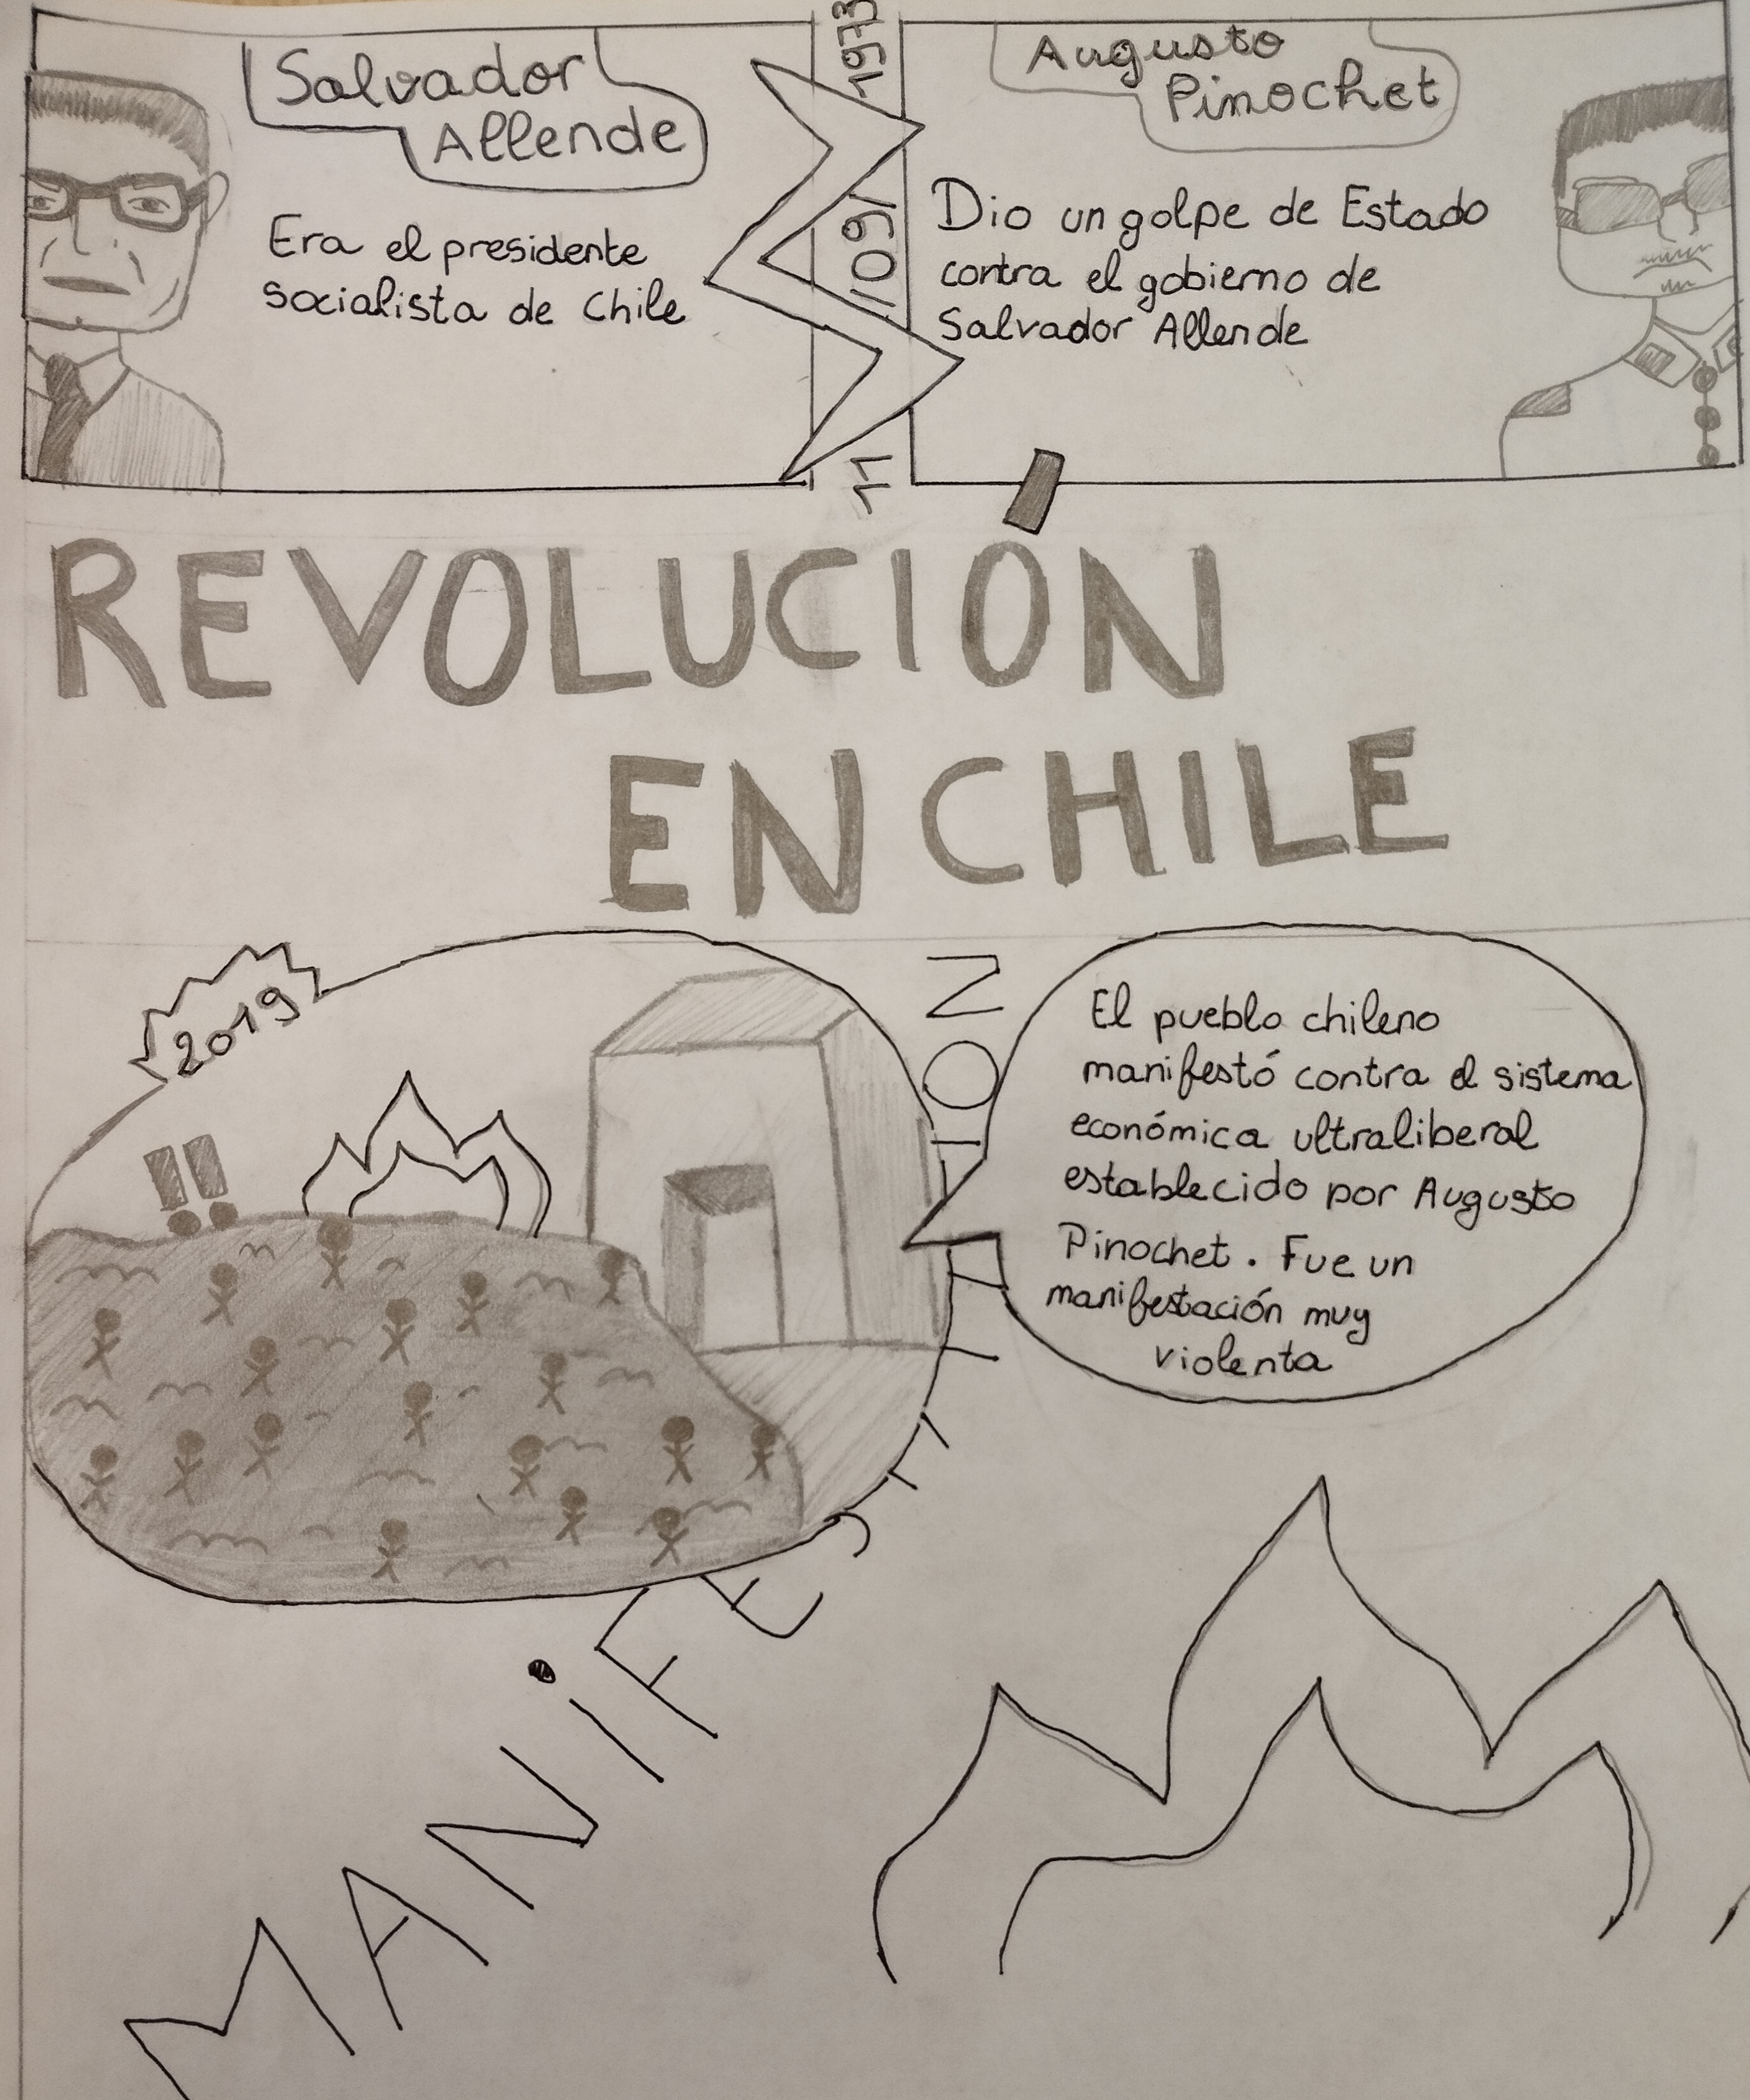 Salvador
Allende
Era el presidente
socialista de Chile
11/09/1973
Augusto
Pinochet
Dio un golpe de Estado
contra el gobierno de
Salvador Allende
REVOLUCIÓN
EN CHILE
2019
!!
MANiFESTATION
El pueblo chileno
manifestó contra el sistema
económica ultraliberal
establecido por Augusto
Pinochet. Fue un
manifestación muy
violenta